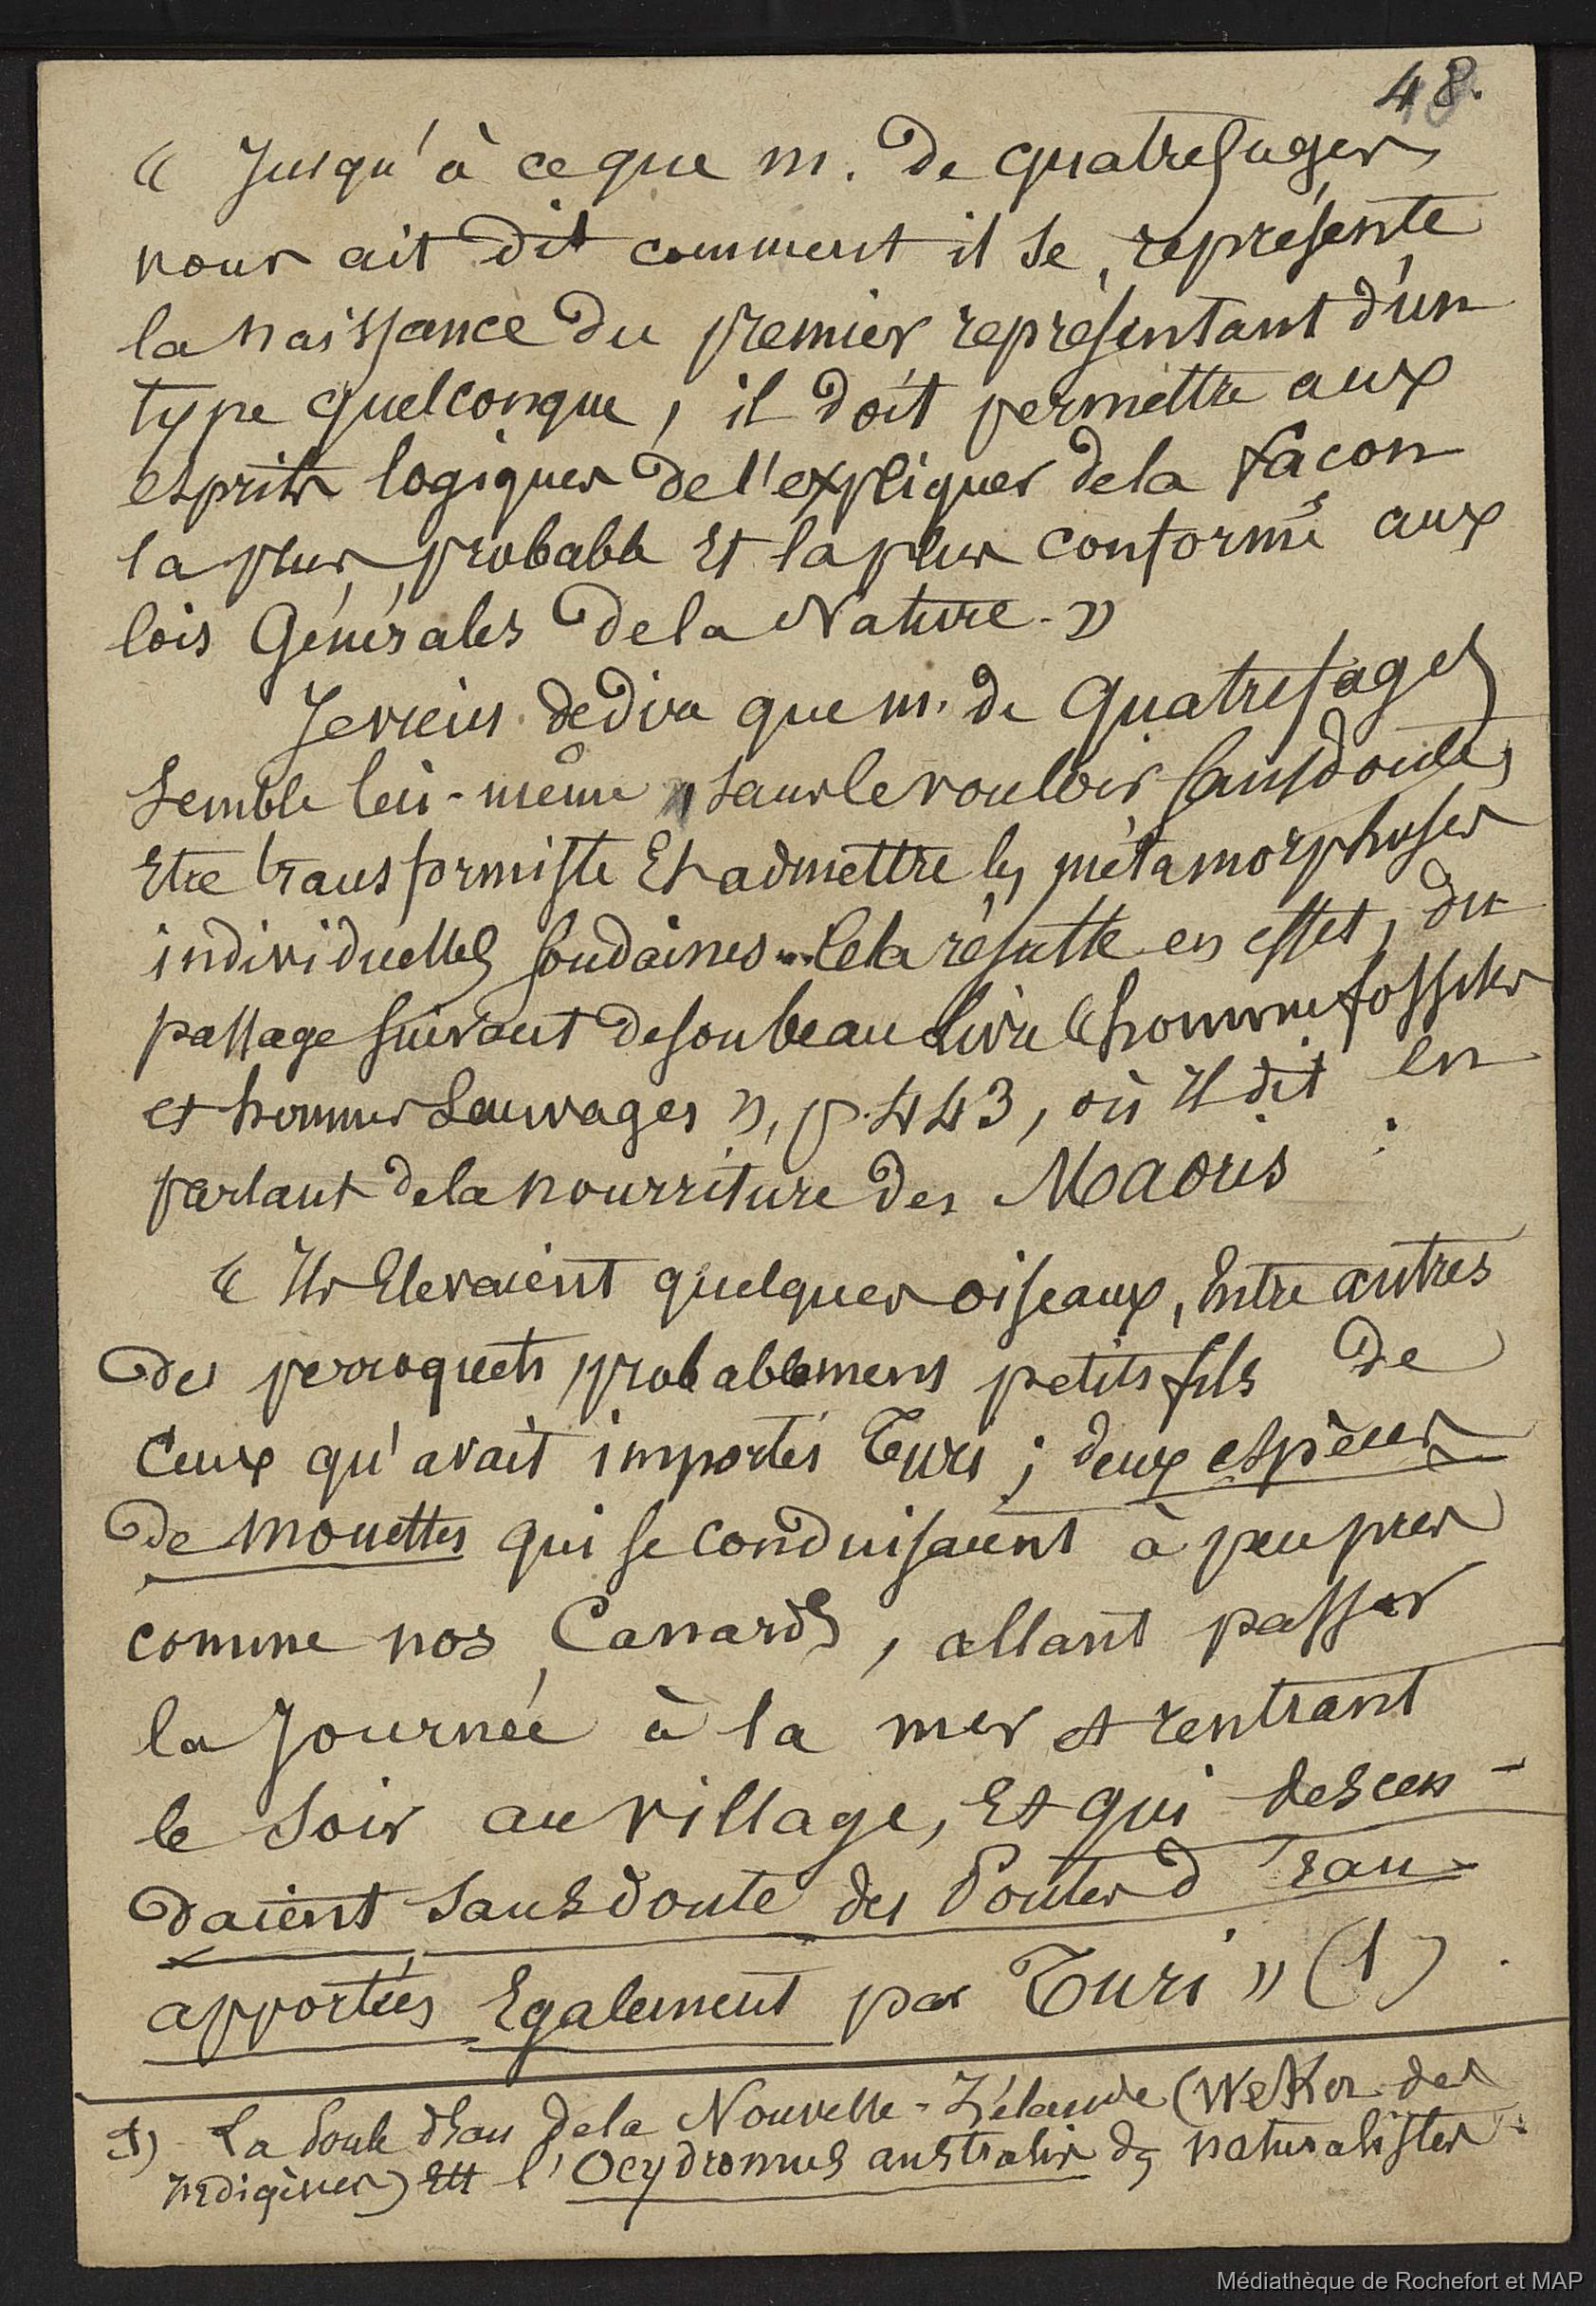 48.
« Jusqu'à ce que m. De quatrefages
nous ait dit comment il se représente
la naissance du premier représentant d'un
type quelconque, il doit permettre aux
esprits logiques de l'expliquer de la façon
la plus probable et la plus conforme aux
lois Générales de la Nature. »
Je viens de dire que m. de quatrefages
semble lui-même sans le vouloir sans doute,
Etre transformiste Et admettre les métamorphoses
individuelles soudaines. Cela résulte en effet, du
passage suivant de son beau Livre « hommes fossiles
et hommes Sauvages », p. 443, où Il dit en
parlant de la nourriture des Maoris :
« Ils Elevaient quelques oiseaux, Entre autres
des perroquets, probablement petits fils de
Ceux qu'avait importés Turi ; deux espèces
de mouettes qui se conduisaient à peu pres
comme nos Canards, allant passer
la Journée à la mer et rentrant
le Soir au village, Et qui descen-
daient sans doute des Poules d'eau
apportées Egalement par Turi » (1)
(1) La Poule d'eau de la Nouvelle-Zélande (Weka des
indigènes) Est l'Ocydromus australis des naturalistes.
Médiathèque de Rochefort et MAP